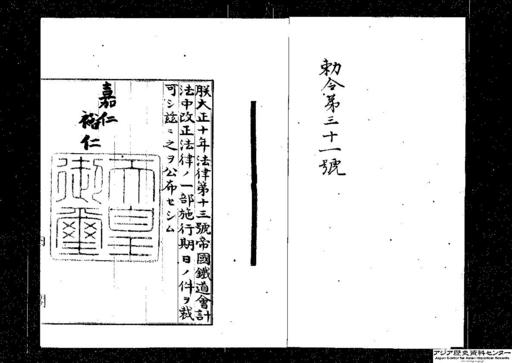 勅令第三十一號
朕大正十年法律第十三號帝國鐵道會計
法中改正法律ノ一部施行期日ノ件ヲ裁
可シ茲ニ之ヲ公布セシム
嘉仁
裕仁
天皇
御璽
アジア歴史資料センター
Japan Center for Asian Historical Records